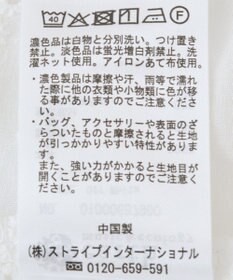 40 F
濃色品は白物と分別洗い。つけ置き
禁止。淡色品は蛍光増白剤禁止。洗
濯ネット使用。アイロンあて布使用。
・濃色製品は摩擦や汗、雨等で濡れ
た際に他の衣類や小物類に色が移
る事がありますのでご注意くださ
い。
・バッグ、アクセサリーや表面のざ
らついたものと摩擦されると生地
が引っかかりやすい特性がありま
す。
また、強い力がかかると生地目が
開くことがありますのでご注意く
ださい。
中国製
(株)ストライプインターナショナル
0120-659-591